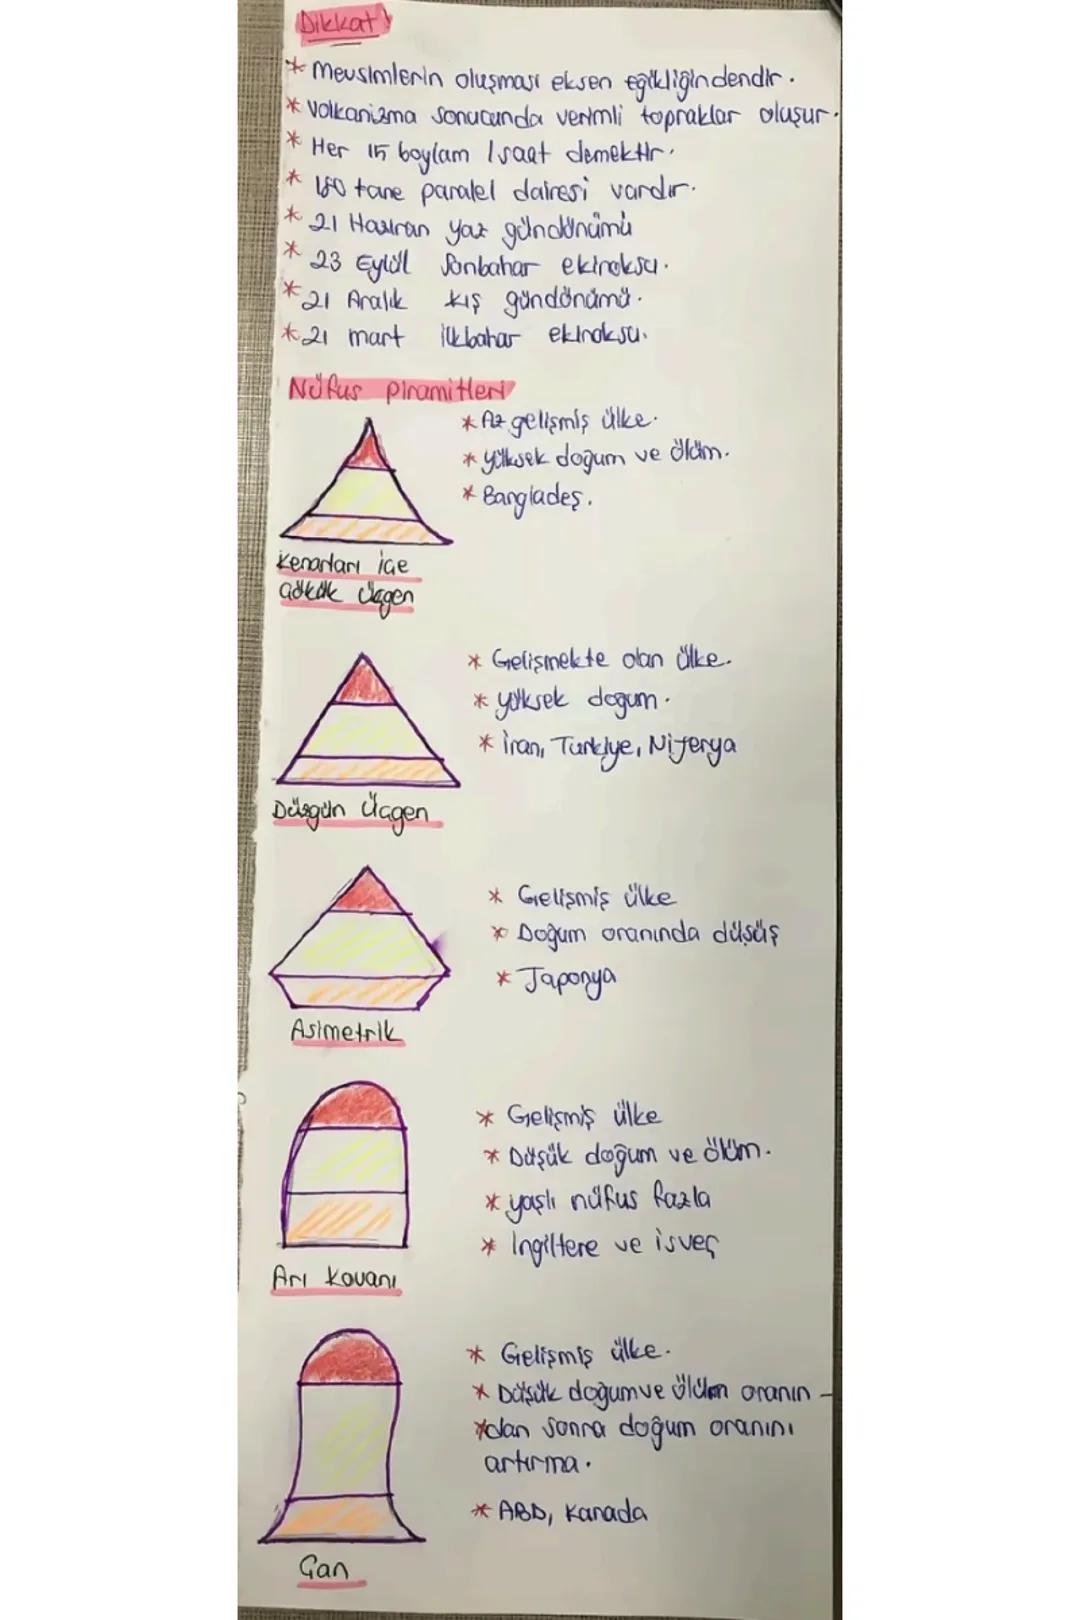 Dikkat!
* Mevsimlerin oluşması eksen eğikliğindendir.
* Volkanizma sonucunda verimli topraklar oluşur.
* Her 15 boylam 1 saat demektir.
* 180 tane paralel dairesi vardır.
* 21 Haziran yaz gündönümü
* 23 Eylül Sonbahar ekinoksu.
* 21 Aralık kış gündönümü.
* 21 mart ilkbahar ekinoksu.
Nüfus piramitleri
* Az gelişmiş ülke.
* yüksek doğum ve ölüm.
* Bangladeş.
Kenarları içe
çökük üçgen
* Gelişmekte olan ülke.
* yüksek doğum.
* İran, Türkiye, Nijerya
Düzgün Üçgen
* Gelişmiş ülke
* Doğum oranında düşüş
* Japonya
Asimetrik
* Gelişmiş ülke
* Düşük doğum ve ölüm.
* yaşlı nüfus fazla
* İngiltere ve isveç
Arı Kovanı
* Gelişmiş ülke.
* Düşük doğum ve ölüm oranın-
* dan sonra doğum oranını
artırma.
* ABD, Kanada
Çan